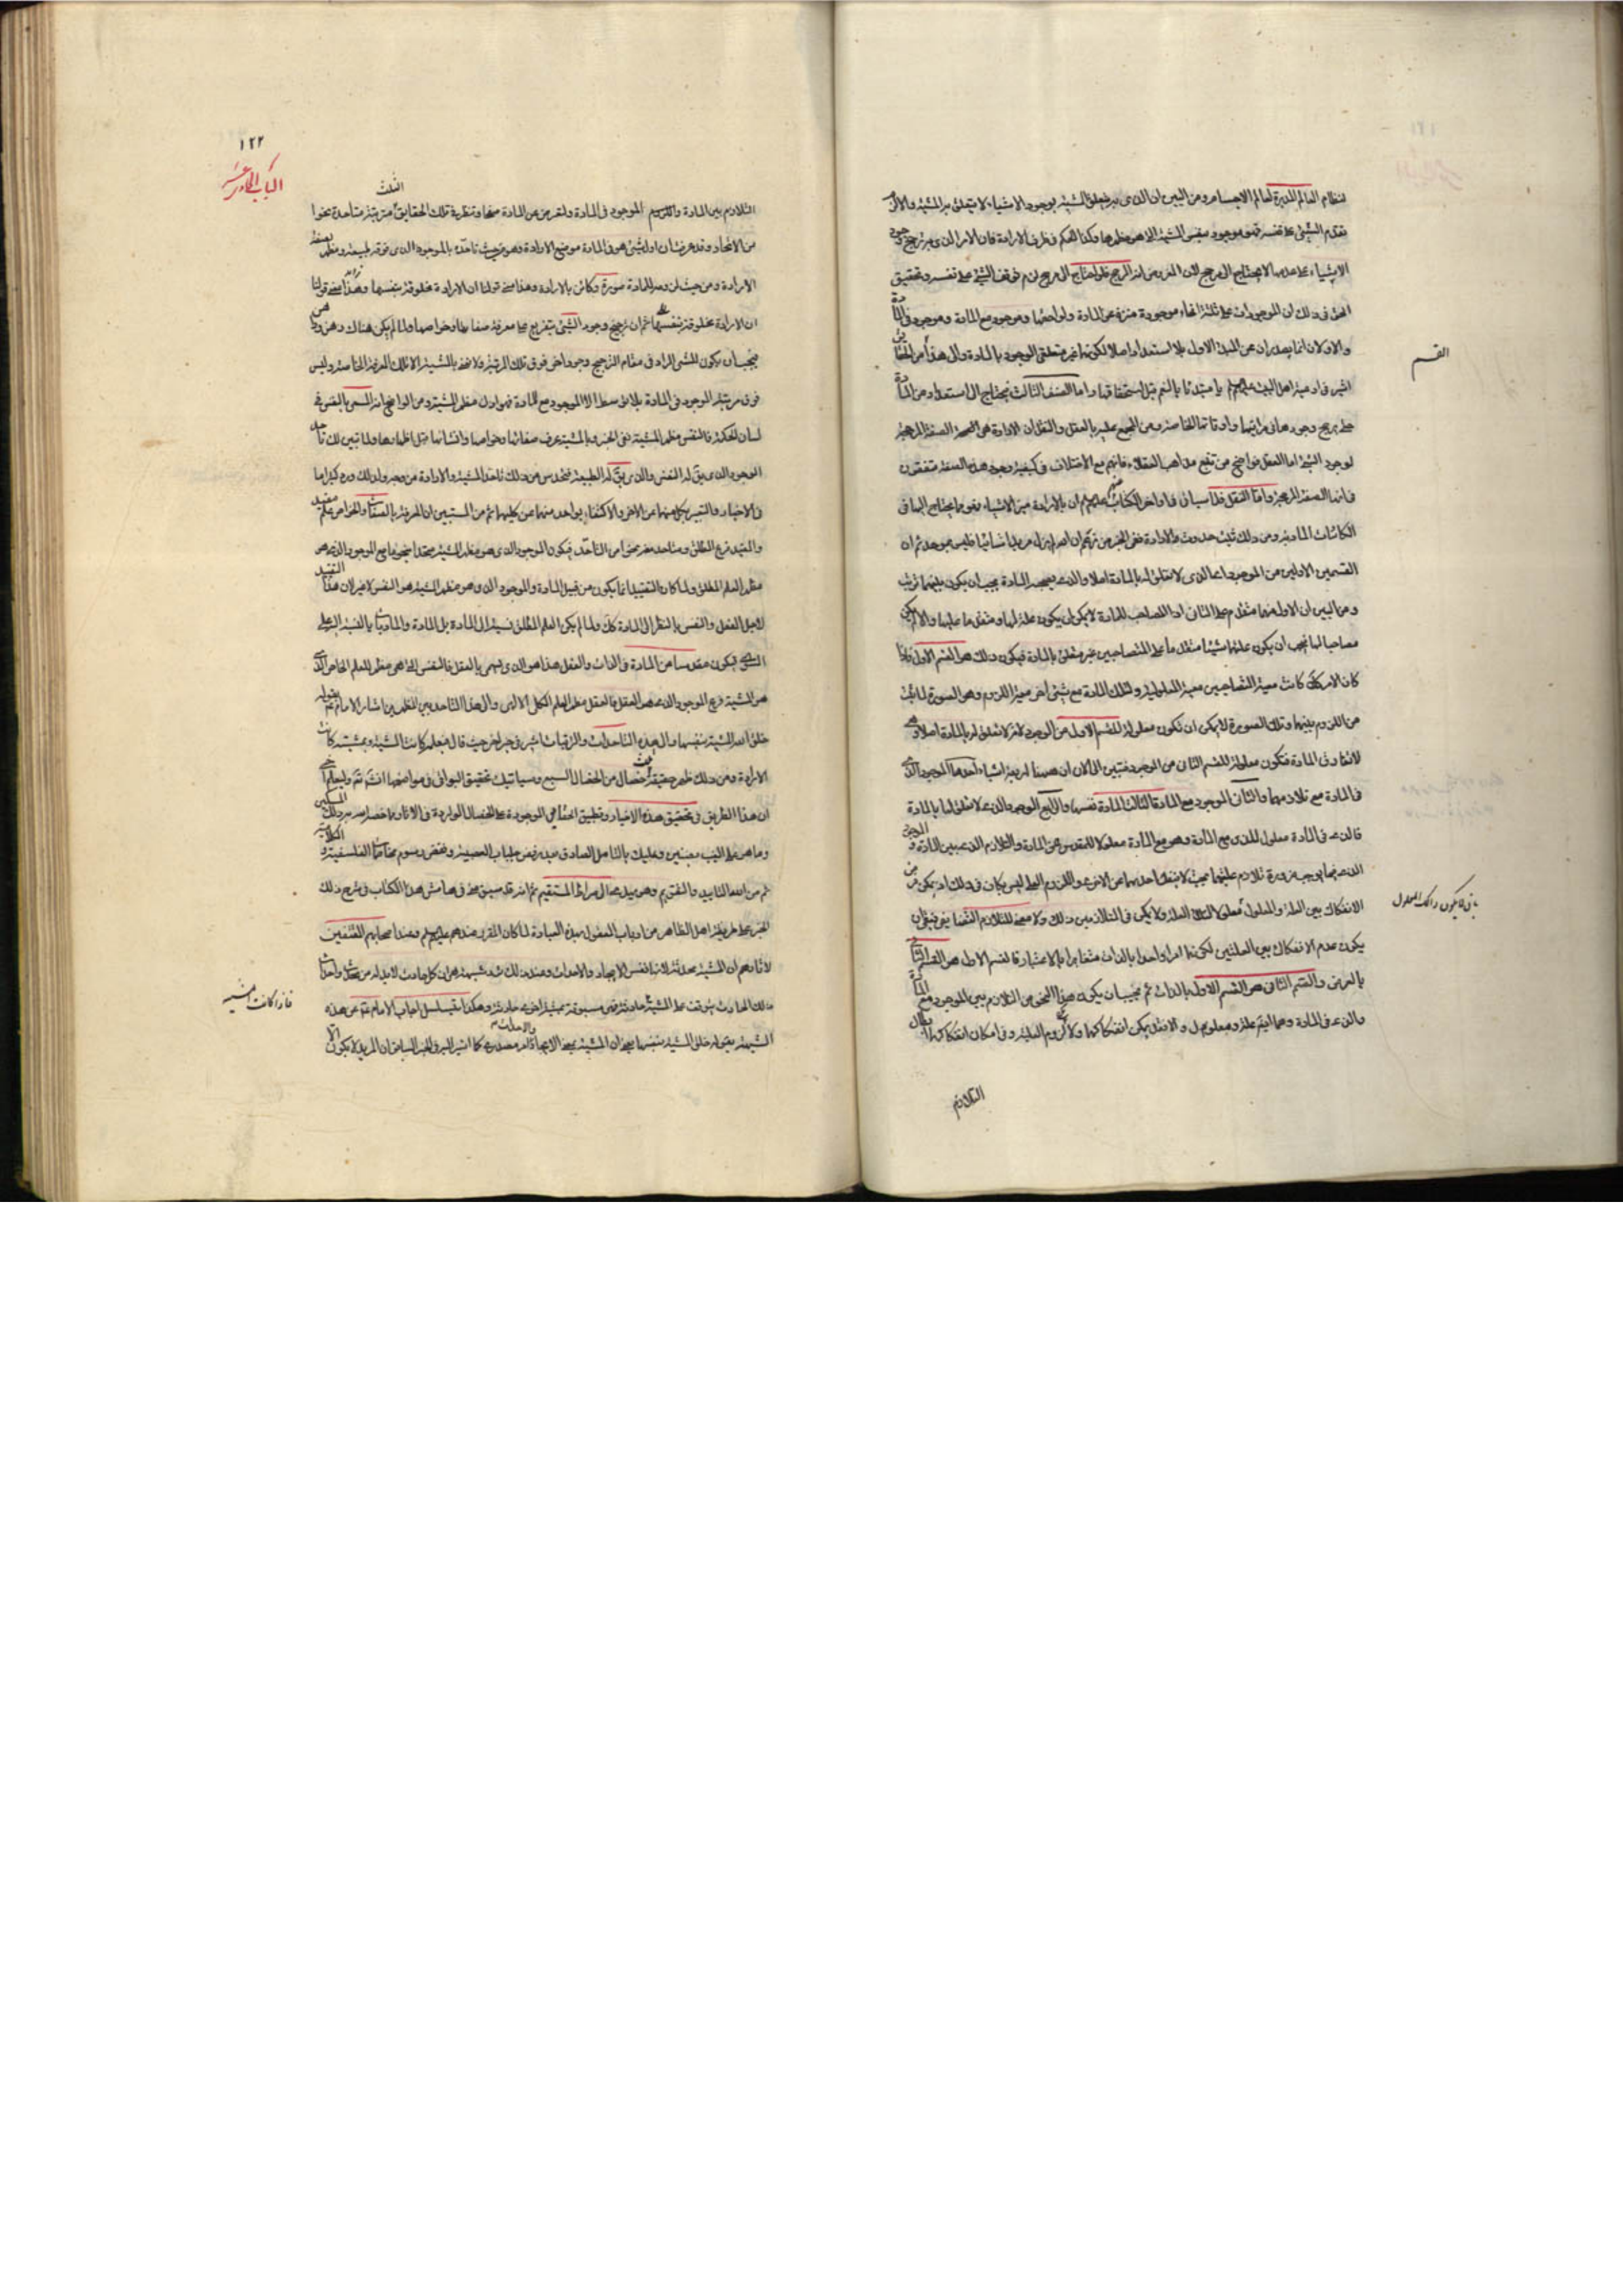 لنظام العالم المدبرة لعالم الاجسام ومن البين ان الذى به يتعلق المشية بوجود الاشياء لا يتعلق به المشية والا لزم
تقدم الشئ على نفسه فهو موجود بنفس المشية الا هو مظهرها وكذا الحكم فى طرف الارادة فان الامر الذى به ترجح وجود
الاشياء على عدمها لا يحتاج الى مرجح لان الفرض انه المرجح فلو احتاج الى مرجح لزم توقف الشئ على نفسه وتحقيق
الحق فى ذلك ان الموجودات على ثلثة انحاء موجودة منزهة عن المادة ولواحقها وموجود مع المادة وموجود فى المادة
والاولان انما يصدران عن المبدء الاول بلا استعداد اصلا لكونهما غير متعلقى الوجود بالمادة والى هذا من الحقايق
اشير فى ادعية اهل البيت عليهم يا مبتدئا بالنعم قبل استحقاقها واما الصنف الثالث فيحتاج الى استعداد من المادة
حتى يرجح وجودها فى مراتبها واوقاتها الخاصة ومن المجمع عليه بالعقل والنقل ان الارادة هى الصفة المرجحة
لوجود الشئ اما العقل فواضح من تتبع مذاهب العقلاء فانهم مع الاختلاف فى كيفية وجود هذه الصفة متفقون
فى انها الصفة المرجحة واما النقل فلما سياتى فى اواخر الكتاب عنهم عليهم ان بالارادة ميز الاشياء فهو ما يحتاج اليها فى
الكائنات المادية ومن ذلك ثبت حدوث الارادة ففى الخبر من زعم ان الله لم يزل مريدا شائيا فليس بموحد ثم ان
القسمين الاولين من الموجود اعنى الذى لا تعلق له بالمادة اصلا والذى يصحبه المادة يجب ان يكون بينهما ترتب
ومن البين ان الاول منهما متقدم على الثانى اذ المصاحب للمادة لا يمكن ان يكون علة لها ومتقدما عليها والا لم يكن
مصاحبا لها فيجب ان يكون علتهما شيئا متقدما على المتصاحبين غير متعلق بالمادة فيكون ذلك هو القسم الاول واذا
كان الامر كك كانت معية المتصاحبين معية المعلولية ولتلك المادة مع شئ اخر معية اللزوم وهو الصورة لما ثبت
من اللزوم بينهما وتلك الصورة لا يمكن ان تكون معلولة للقسم الاول من الوجود لانه لا تعلق له بالمادة اصلا
لانها فى المادة فتكون معلولة للقسم الثانى من الوجود فتبين الى الان ان ههنا اربعة اشياء احدها الموجود الذى
فى المادة مع تلازمهما والثانى الموجود مع المادة الثالث المادة نفسها والرابع الوجود الذى لا تعلق لها بالمادة
فالذى فى المادة معلول للذى مع المادة وهو مع المادة معلولا للمقدس عن المادة والتلازم الذى بين المادة
الذى فيها يوجب ضرورة تلازم علتيهما بحيث لا ينفك احدهما عن الاخر واللزوم العلى ليس بكاف فى ذلك اذ يمكن
الانفكاك بين العلة والمعلول ولا يكفى فى التلازم بين ذلك ولا معنى للتلازم التضايفى فبقى ان
يكون عدم الانفكاك بين العلتين لكونهما امرا واحدا بالذات متغايرا بالاعتبار فالقسم الاول هو القسم الثانى
بالعرض والقسم الثانى هو القسم الاول بالذات ثم يجب ان يكون هذا النحو من التلازم بين الموجود مع المادة
والذى فى المادة وهما ايضا علة ومعلول والا فقد يمكن انفكاكهما ولا لزوم العلية وفى امكان انفكاكهما ابطال
التلازم
القسم
١٢٢
الباب الحادى عشر
التلازم بين المادة واللزوم الموجود فى المادة
من الاتحاد وقد عرفت ان اول شئ هو فى المادة موضع الارادة وهو من حيث تاحده بالموجود الذى فوقه طبيعة ومظهر
الارادة ومن حيث لزومه للمادة صورة وكائن بالارادة وهذا معنى قولنا ان الارادة مخلوقة بنفسها وهذا معنى قولنا
ان الارادة مخلوقة بنفسها ثم ان ترجيح وجود الشئ يتفرع على معرفة صفاتها وخواصها ولما لم يكن هناك
فيجب ان يكون للشئ المراد فى مقام الترجيح وجود اخر فوق تلك المرتبة ولا نعنى بالمشية الا تلك المعرفة الخاصة وليس
فوق مرتبة الموجود فى المادة بلا توسط الا الموجود مع المادة فهو اول مظهر المشية ومن الواضح انه المسمى بالنفس فى
لسان الحكمة فالنفس مظهر المشية ففى الخبر وبالمشية عرف صفاتها وخواصها وانشاها قبل اظهارها ولما تبين لك تاحد
الوجود الذى يق له النفس والذى يق له الطبيعة فتحدس من ذلك تاحد المشية والارادة من وجه ولذلك ورد كثيرا ما
فى الاخبار والتعبير بكل منهما عن الاخر والاكتفاء بواحد منهما عن كليهما ثم من المستبين ان المعرفة بالصفات والخواص علم مقيد
والمقيد فرع المطلق ومتاحد معه نحوا من التاحد فيكون الموجود الذى هو مظهر المشية متحدا بنحو ما مع الموجود الذى هو
مظهر العلم المطلق ولما كان التقييد انما يكون من قبل المادة والموجود الذى هو مظهر المشية هو النفس لا غير لان هذا التقييد
لاجل العقل والنفس بالنظر الى المادة كان ولما لم يكن العلم المطلق نسبة الى المادة بل المادة والماديات بالنسبة اليه على
السواء فيكون مقدسا من المادة فى الذات والفعل هذا هو الذى يسمى بالعقل فالنفس التى هى مظهر للعلم الخاص الذى
هو المشية فرع الموجود الذى هو العقل فالعقل مظهر العلم الكلى الالهى والى هذا التاحد بين المظهرين اشار الامام بقوله
خلق الله المشية بنفسها والى هذه التاحدات والترقيات اشير فى خبر اخر حيث قال فبعلمه كانت المشية وبمشيته كانت
الارادة ومن ذلك ظهر حقيقة ثلث خصال من الخصال السبع وسياتيك تحقيق البواقى فى مواضعها انشاء الله تم وليعلم
ان هذا الطريق فى تحقيق هذه الاخبار وتطبيق الحقايق الموجودة على الخصال الواردة فى الاثار مما خصنا الله به بذلك المسكين
وما هو على الغيب بضنين وعليك بالتامل الصادق بعد رفض جلباب العصبية ونقض رسوم الفلسفية
ثم من الله التاييد والتقويم وهو يهدى الى صراط المستقيم ثم انه قد سبق منا فى هامش هذا الكتاب فى شرح ذلك
الخبر على طريقة اهل الظاهر من ارباب العقول بهذه العبادة لما كان المقرر عندهم عليهم وعند اصحابهم المقتفين
لاثارهم ان المشية محدثة لانها نفس الايجاد والاحداث وعند ذلك شبهة هى ان كل حادث لابد له من محدث واحداث
ذلك الحادث يتوقف على المشية حادثة فهى مسبوقة بمشية اخرى حادثة وهكذا فيتسلسل اجاب الامام عن هذه
الشبهة بقوله خلق المشية بنفسها بمعنى ان المشية بمعنى الايجاد والاحداث امر مصدرى كما اشير اليه فى الخبر السابق ان المريد لا يكون الا